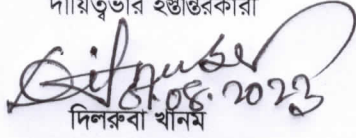 দায়িত্বভার হস্তান্তরকারী
08.2023
দিলরুবা খানম